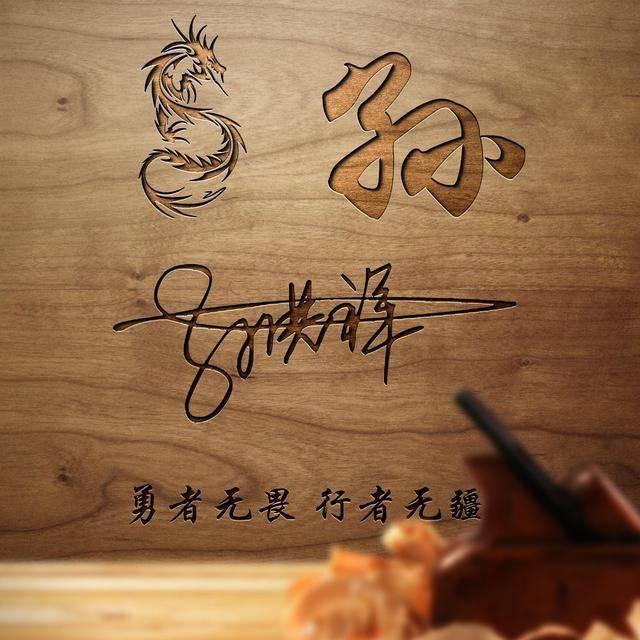 孙
孙洪祥
勇者无畏 行者无疆